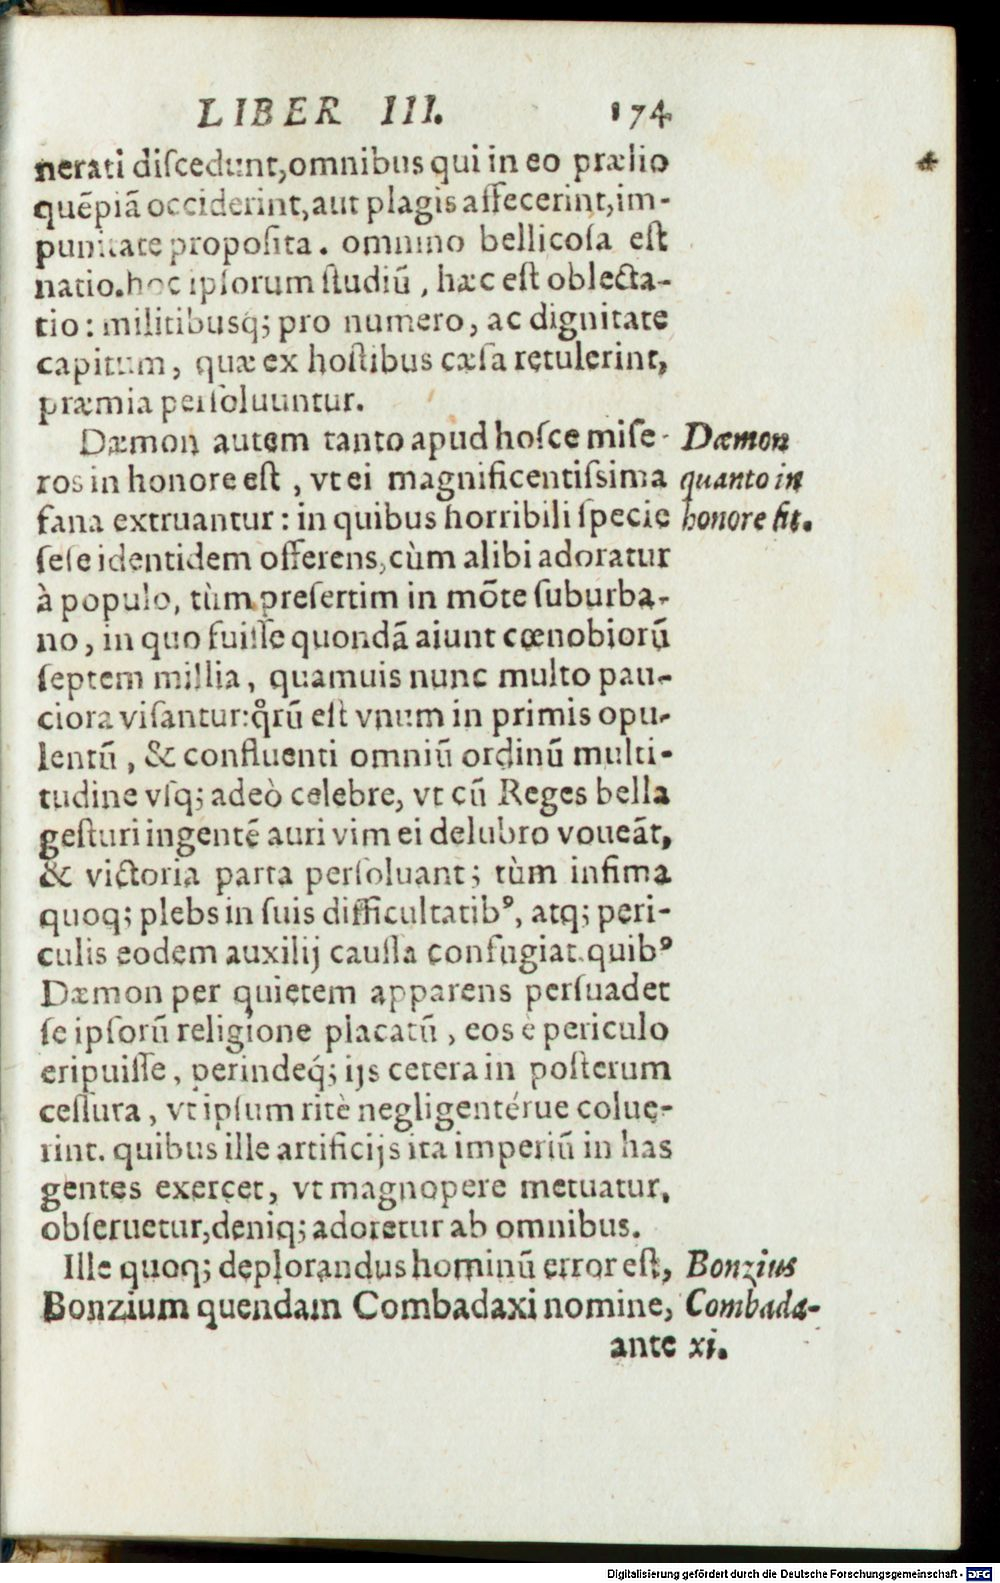 LIBER III. 174
nerati diſcedunt,omnibus qui in eo prælio
quẽpiã occiderint,aut plagis affecerint,im-
punitate propoſita. omnino bellicoſa eſt
natio.hoc ipſorum ſtudiũ, hæc eſt oblecta-
tio: militibusq; pro numero, ac dignitate
capitum, quæ ex hoſtibus cæſa retulerint,
præmia perſoluuntur.
Dæmon autem tanto apud hoſce miſe-
ros in honore eſt, vt ei magnificentiſsima
fana extruantur: in quibus horribili ſpecie
ſeſe identidem offerens,cùm alibi adoratur
à populo, tùm preſertim in mõte ſuburba-
no, in quo fuiſſe quondã aiunt cœnobiorũ
ſeptem millia, quamuis nunc multo pau-
ciora viſantur:qͦrũ eſt vnum in primis opu-
lentũ, & confluenti omniũ ordinũ multi-
tudine vſq; adeò celebre, vt cũ Reges bella
geſturi ingentẽ auri vim ei delubro voueãt,
& victoria parta perſoluant; tùm infima
quoq; plebs in ſuis difficultatibꝰ, atq; peri-
culis eodem auxilij cauſſa confugiat.quibꝰ
Dæmon per quietem apparens perſuadet
ſe ipſorũ religione placatũ, eos è periculo
eripuiſſe, perindeq́; ijs cetera in poſterum
ceſſura, vt ipſum ritè negligentérue colue-
rint. quibus ille artificijs ita imperiũ in has
gentes exercet, vt magnopere metuatur,
obſeruetur,deniq; adoretur ab omnibus.
Ille quoq; deplorandus hominũ error eſt,
Bonzium quendam Combadaxi nomine,
ante
Dæmon
quanto in
honore ſit.
Bonzius
Combada-
xi.
Digitalisierung gefördert durch die Deutsche Forschungsgemeinschaft - DFG